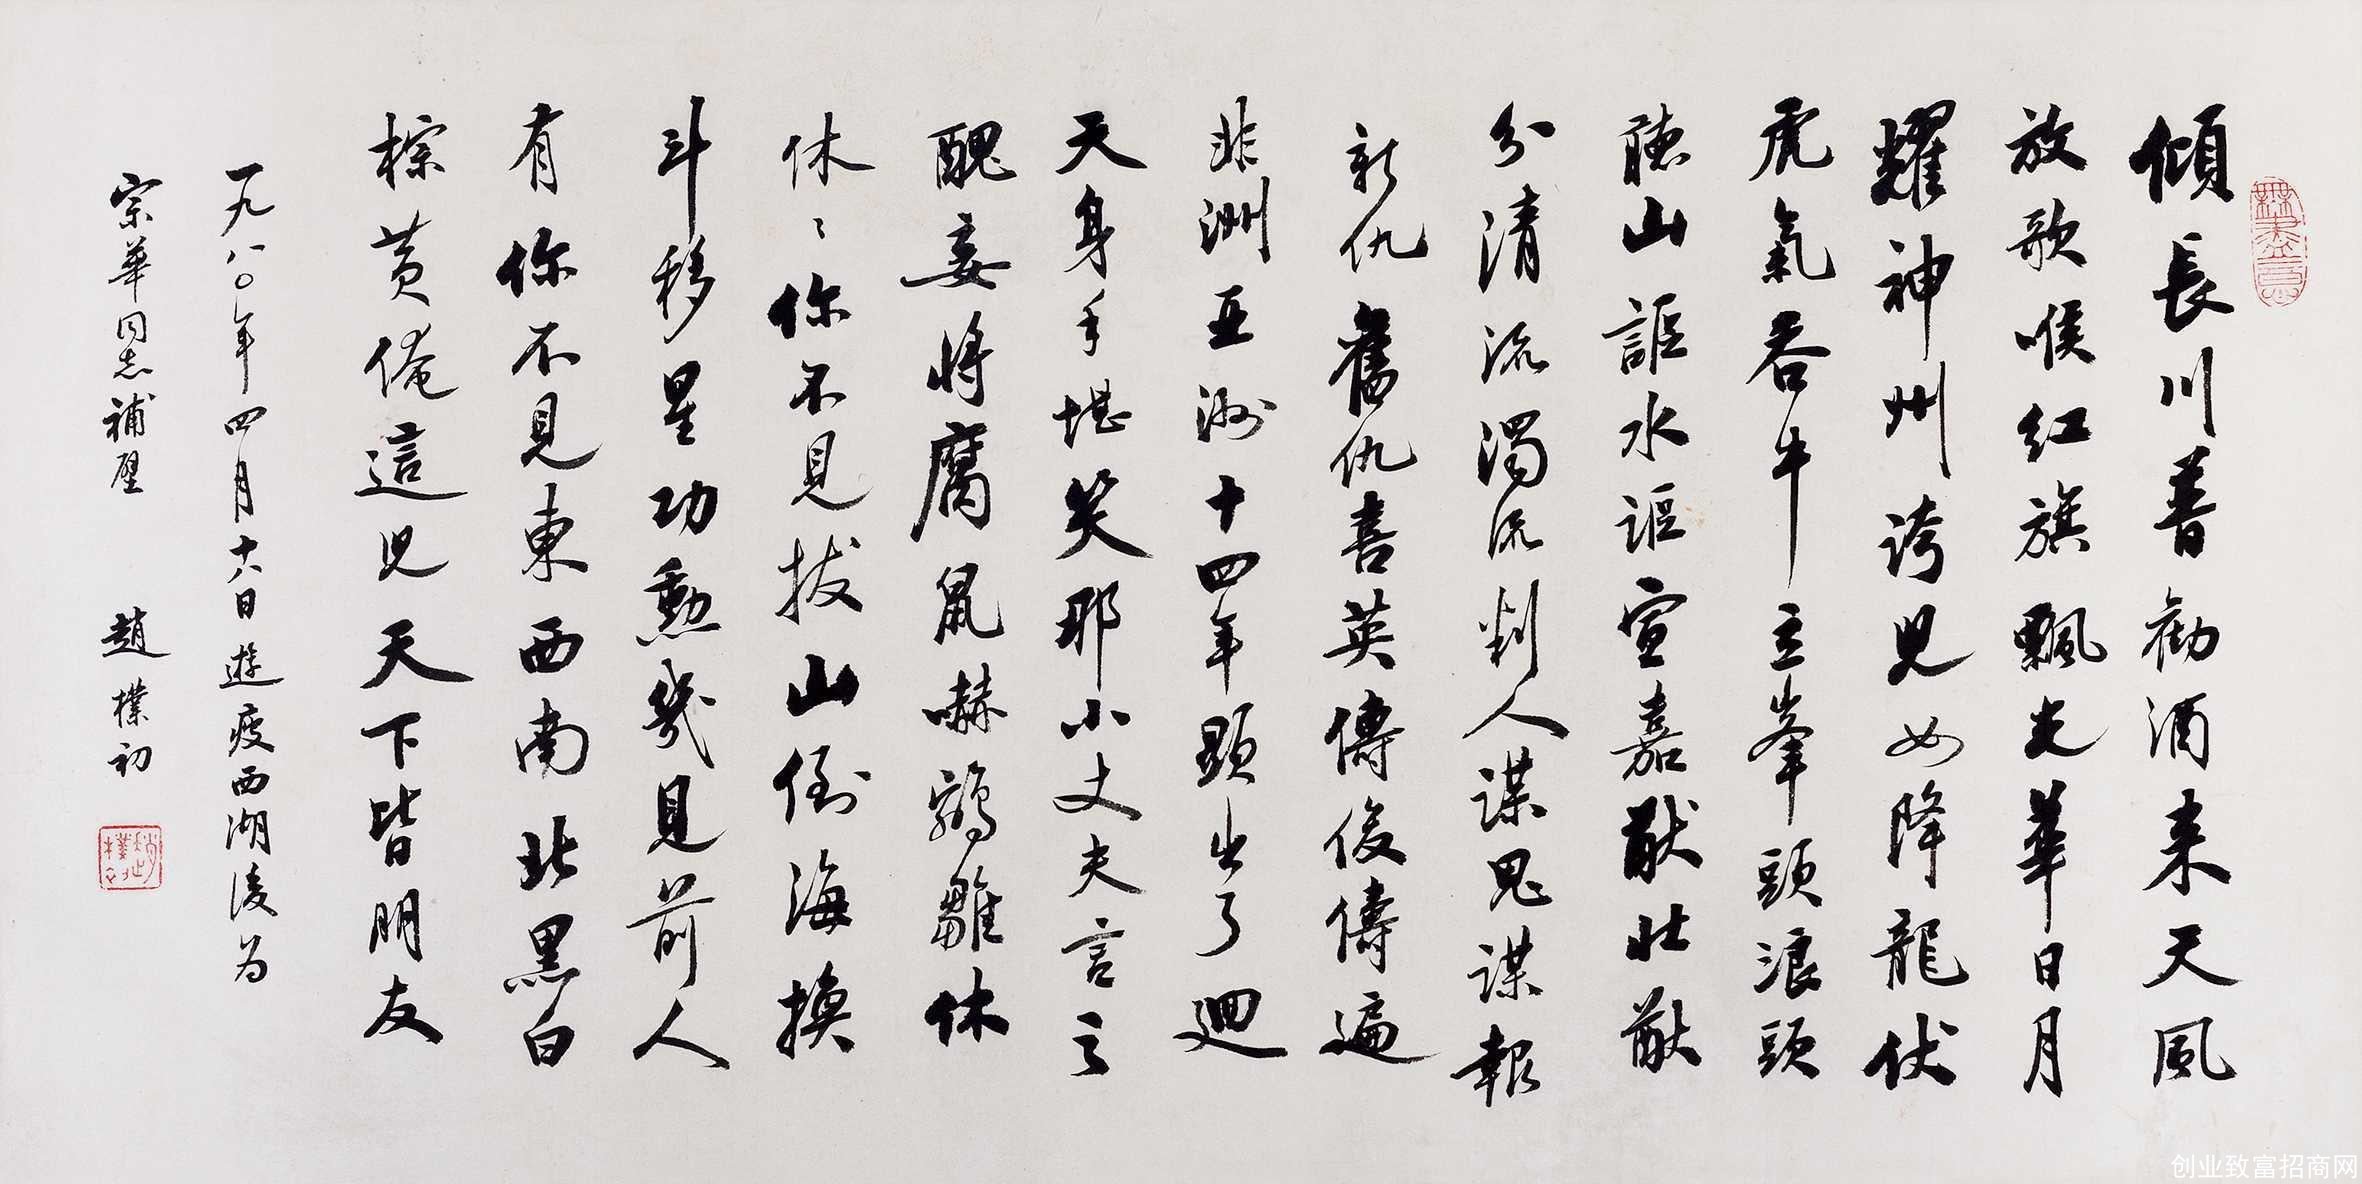 傾長川普勸酒来天風
放歌喉红旗飄光華日月
耀神州誇児女降龍伏
虎氣吞牛立峯頭浪頭
聽山謳水謳宣嘉猷壮猷
分清流濁流判人謀鬼謀報
新仇舊仇喜英儔俊儔遍
非洲亚洲十四年顕出了迴
天身手堪笑那小丈夫言言
醜妾将腐鼠嚇鵷雛休
休〻你不見拔山倒海換
斗移星功勳幾見前人
有你不見東西南北黑白
棕黄俺這児天下皆朋友
一九八〇年四月十八日遊疫西湖後为
宗華同志補壁 趙樸初
無盡意
趙樸初
创业致富招商网